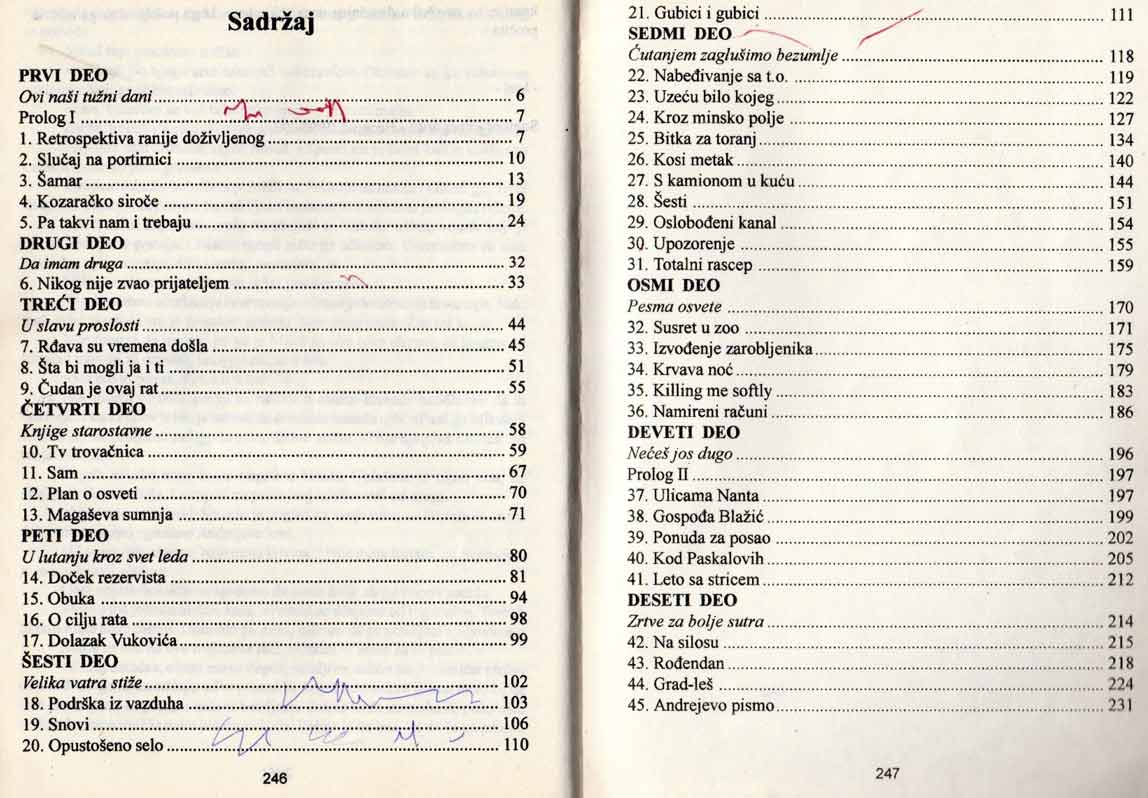 Sadržaj
PRVI DEO
Ovi naši tužni dani ..... 6
Prolog I ..... 7
1. Retrospektiva ranije doživljenog ..... 7
2. Slučaj na portirnici ..... 10
3. Šamar ..... 13
4. Kozaračko siroče ..... 19
5. Pa takvi nam i trebaju ..... 24
DRUGI DEO
Da imam druga ..... 32
6. Nikog nije zvao prijateljem ..... 33
TREĆI DEO
U slavu proslosti ..... 44
7. Rđava su vremena došla ..... 45
8. Šta bi mogli ja i ti ..... 51
9. Čudan je ovaj rat ..... 55
ČETVRTI DEO
Knjige starostavne ..... 58
10. Tv trovačnica ..... 59
11. Sam ..... 67
12. Plan o osveti ..... 70
13. Magaševa sumnja ..... 71
PETI DEO
U lutanju kroz svet leda ..... 80
14. Doček rezervista ..... 81
15. Obuka ..... 94
16. O cilju rata ..... 98
17. Dolazak Vukovića ..... 99
ŠESTI DEO
Velika vatra stiže ..... 102
18. Podrška iz vazduha ..... 103
19. Snovi ..... 106
20. Opustošeno selo ..... 110
246
21. Gubici i gubici ..... 111
SEDMI DEO
Ćutanjem zaglušimo bezumlje ..... 118
22. Nabeđivanje sa t.o. ..... 119
23. Uzeću bilo kojeg ..... 122
24. Kroz minsko polje ..... 127
25. Bitka za toranj ..... 134
26. Kosi metak ..... 140
27. S kamionom u kuću ..... 144
28. Šesti ..... 151
29. Oslobođeni kanal ..... 154
30. Upozorenje ..... 155
31. Totalni rascep ..... 159
OSMI DEO
Pesma osvete ..... 170
32. Susret u zoo ..... 171
33. Izvođenje zarobljenika ..... 175
34. Krvava noć ..... 179
35. Killing me softly ..... 183
36. Namireni računi ..... 186
DEVETI DEO
Nećeš jos dugo ..... 196
Prolog II ..... 197
37. Ulicama Nanta ..... 197
38. Gospođa Blažić ..... 199
39. Ponuda za posao ..... 202
40. Kod Paskalovih ..... 205
41. Leto sa stricem ..... 212
DESETI DEO
Zrtve za bolje sutra ..... 214
42. Na silosu ..... 215
43. Rođendan ..... 218
44. Grad-leš ..... 224
45. Andrejevo pismo ..... 231
247